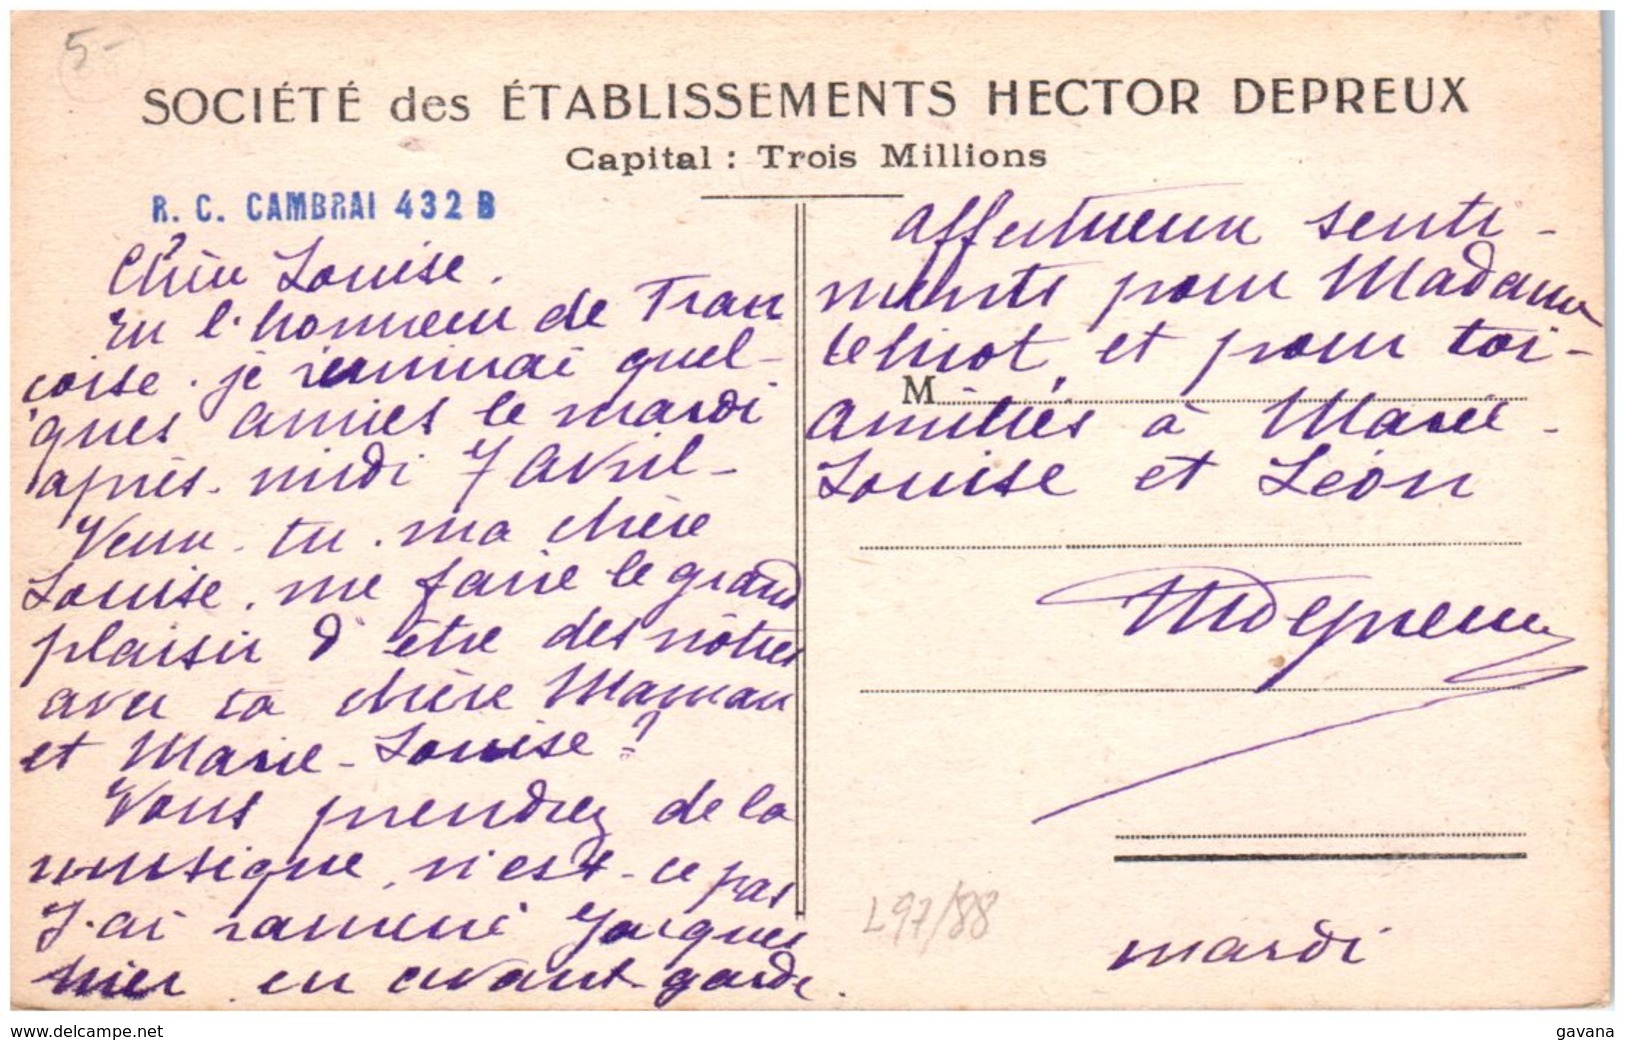 5-
SOCIÉTÉ des ÉTABLISSEMENTS HECTOR DEPREUX
Capital : Trois Millions
R. C. CAMBRAI 432 B
Chère Louise.
En l'honneur de Fran
çoise. je réunirai quel-
ques amies le mardi
après-midi 7 Avril-
Veux-tu. ma chère
Louise, me faire le grand
plaisir d'être des nôtres
avec ta chère Maman
et Marie-Louise ?
Vous prendrez de la
musique, n'est-ce pas
J'ai ramené Jacques
hier en avant-garde.
Affectueux senti-
ments pour Madame
et pour toi-
M
Amitiés à Marie-
Louise et Léon
MDepreux
L97/88
mardi
www.delcampe.net
gavana